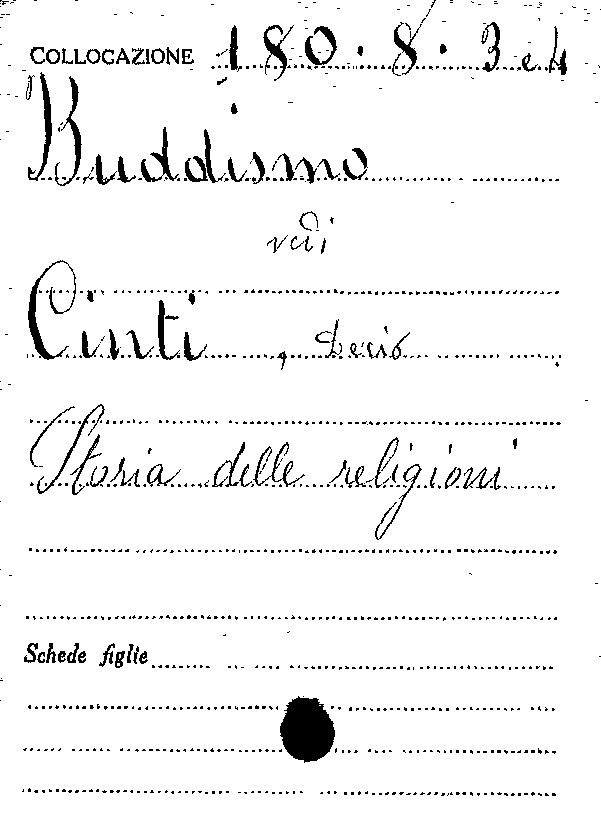 COLLOCAZIONE 180.8.3 e 4
Buddismo
vedi
Cinti, Decio
Storia delle religioni
Schede figlie